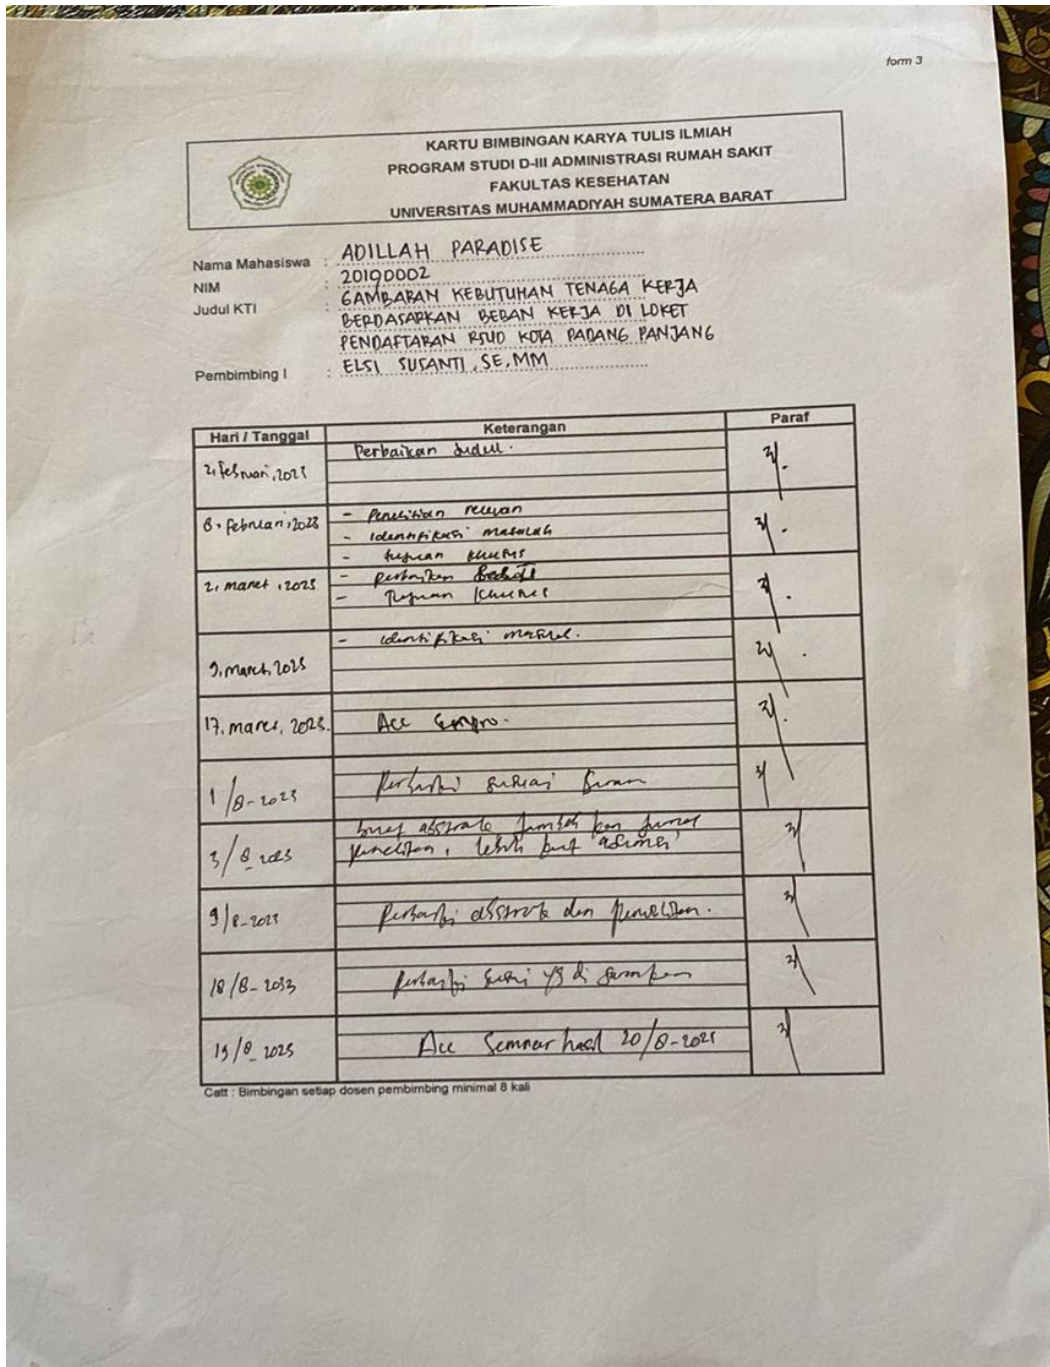 form 3
KARTU BIMBINGAN KARYA TULIS ILMIAH
PROGRAM STUDI D-III ADMINISTRASI RUMAH SAKIT
FAKULTAS KESEHATAN
UNIVERSITAS MUHAMMADIYAH SUMATERA BARAT
Nama Mahasiswa : ADILLAH PARADISE
NIM : 20190002
Judul KTI : GAMBARAN KEBUTUHAN TENAGA KERJA
BERDASARKAN BEBAN KERJA DI LOKET
PENDAFTARAN RSUD KOTA PADANG PANJANG
Pembimbing I : ELSI SUSANTI, SE, MM
Hari / Tanggal Keterangan Paraf
2, februari, 2023 Perbaikan Judul.
8, februari, 2023 - Penelitian relevan
- Identifikasi masalah
- tujuan khusus
2, maret, 2023 - perbaikan
- Tujuan khusus
9, maret, 2023 - identifikasi
17, maret, 2023. Acc Sempro.
1/8-2023 Perbaiki sesuai saran
3/8-2023 buat abstrak,
penelitian, lebih
9/8-2023 Perbaiki abstrak dan penelitian.
18/8-2023 perbaiki yg di
19/8-2023 Acc Seminar hasil 20/8-2023
Catt : Bimbingan setiap dosen pembimbing minimal 8 kali